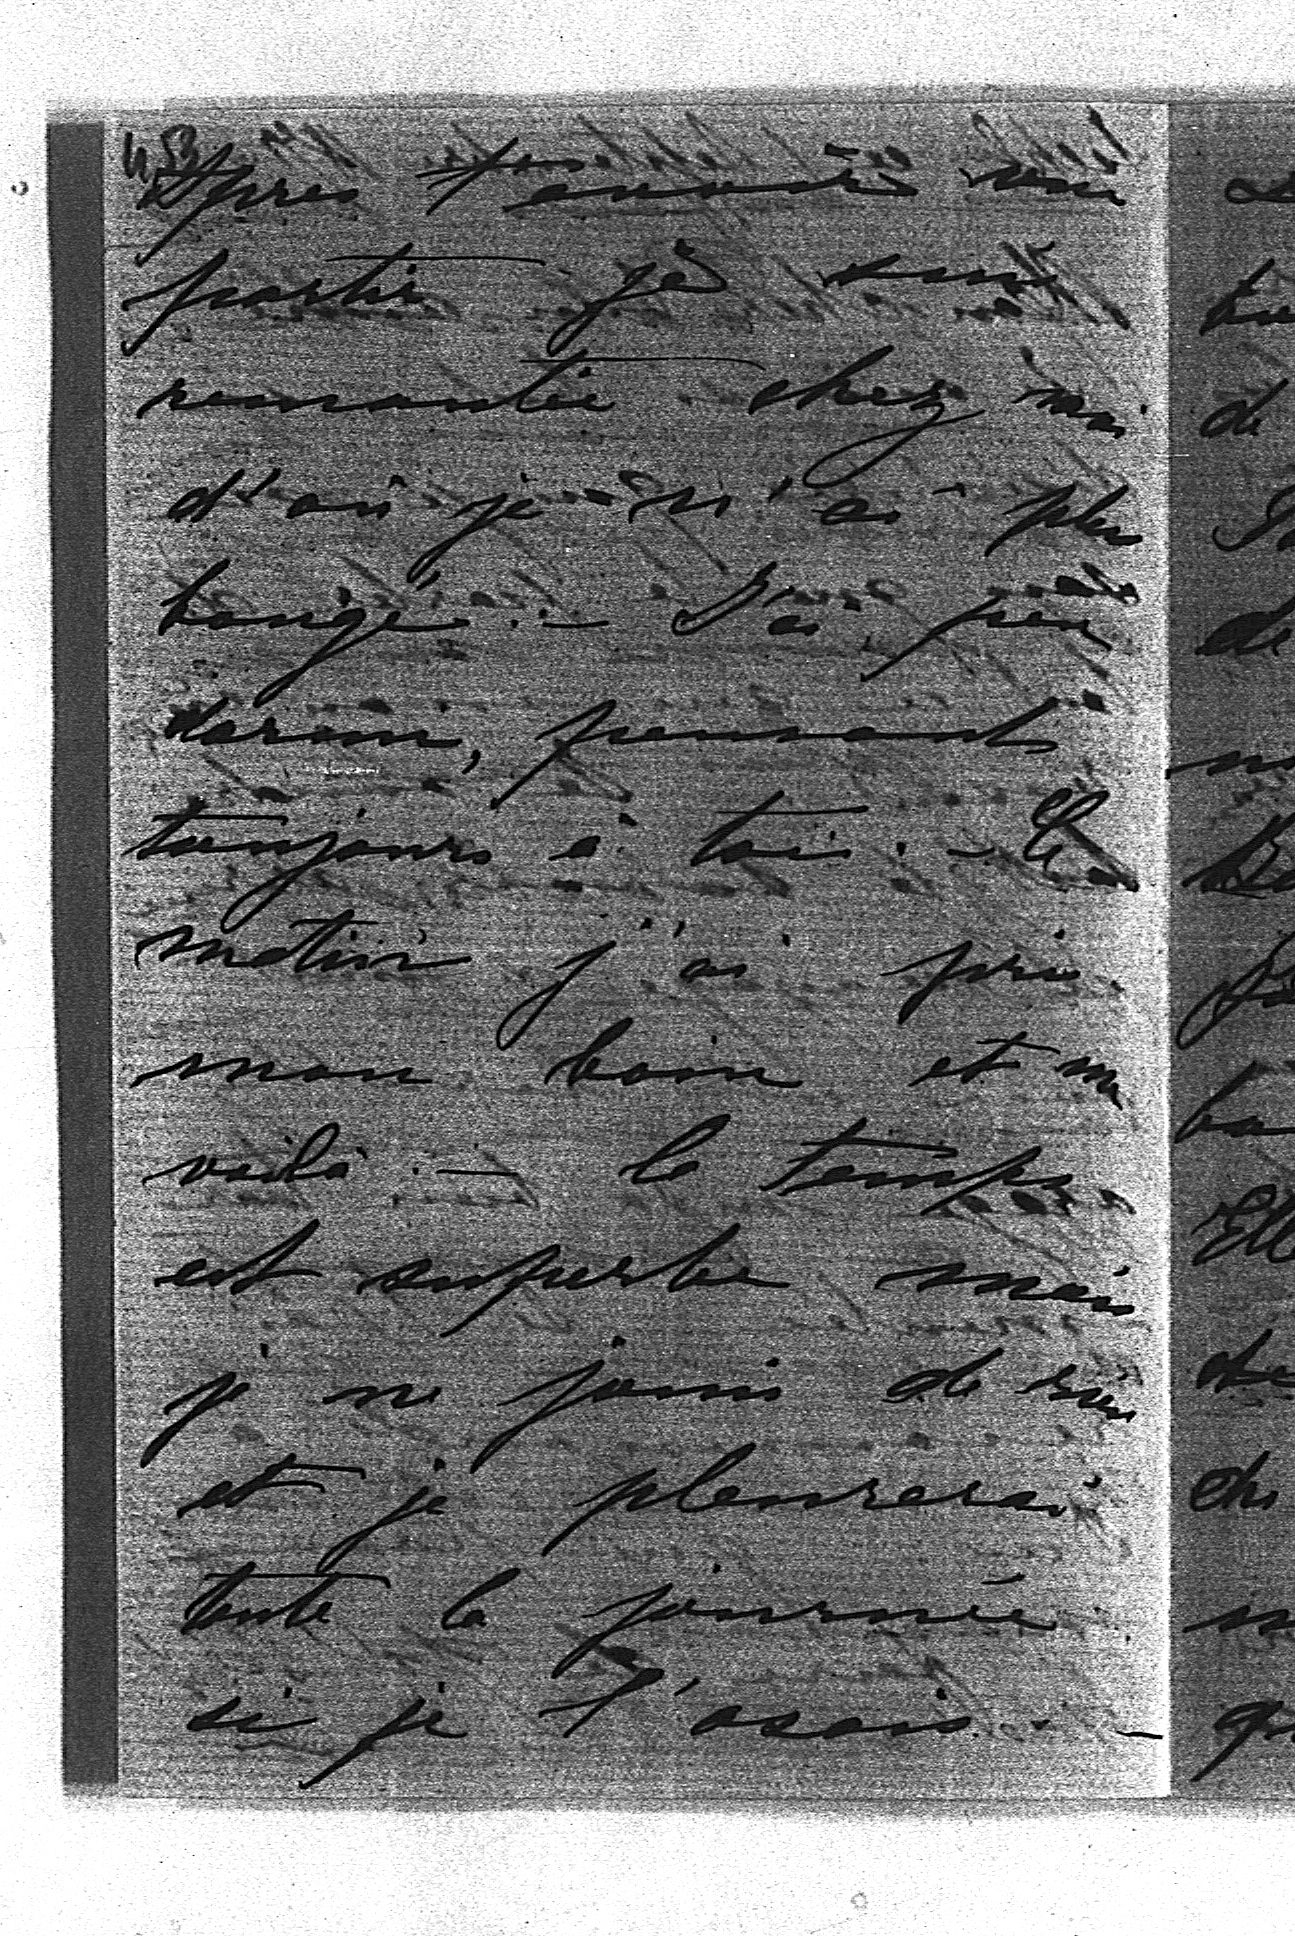 Après t'avoir vu
partir je suis
remontée chez moi
d'où je n'ai plus
bougé. — J'ai peu
dormi, pensant
toujours à toi. — Ce
matin j'ai pris
mon bain et me
voilà. — le temps
est superbe mais
je ne jouis de rien
et je pleurerai
toute la journée
si je l'osais. —